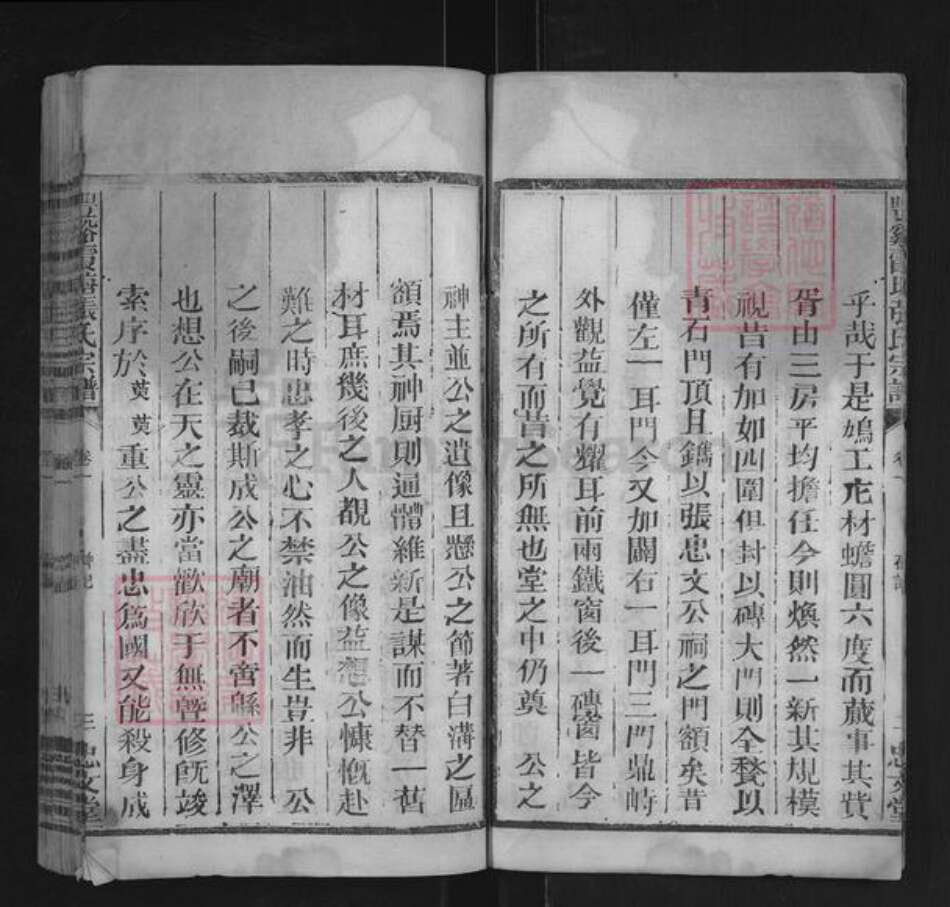 乎哉于是鳩工庀材蟾圓六度而蕆事其費
胥由三房平均擔任今則煥然一新其規模
視昔有加如四圍但封以磚大門則全甃以
青石門頂且鐫以張忠文公祠之門額矣昔
僅左一耳門今又加闢右一耳門三門鼎峙
外觀益覺有耀耳前兩鐵窗後一磚窗皆今
之所有而昔之所無也堂之中仍奠 公之
神主並公之遺像且懸公之節著白溝之匾
額焉其神厨則通體維新是謀而不替一舊
材耳庶幾後之人覩公之像益想公慷慨赴
難之時忠孝之心不禁油然而生豈非 公
之後嗣已裁斯成公之廟者不啻緜公之澤
也想公在天之靈亦當歡欣于無曁修旣竣
索序於 英 英重公之盡忠爲國又能殺身成
張氏宗譜 卷一 三 忠文堂